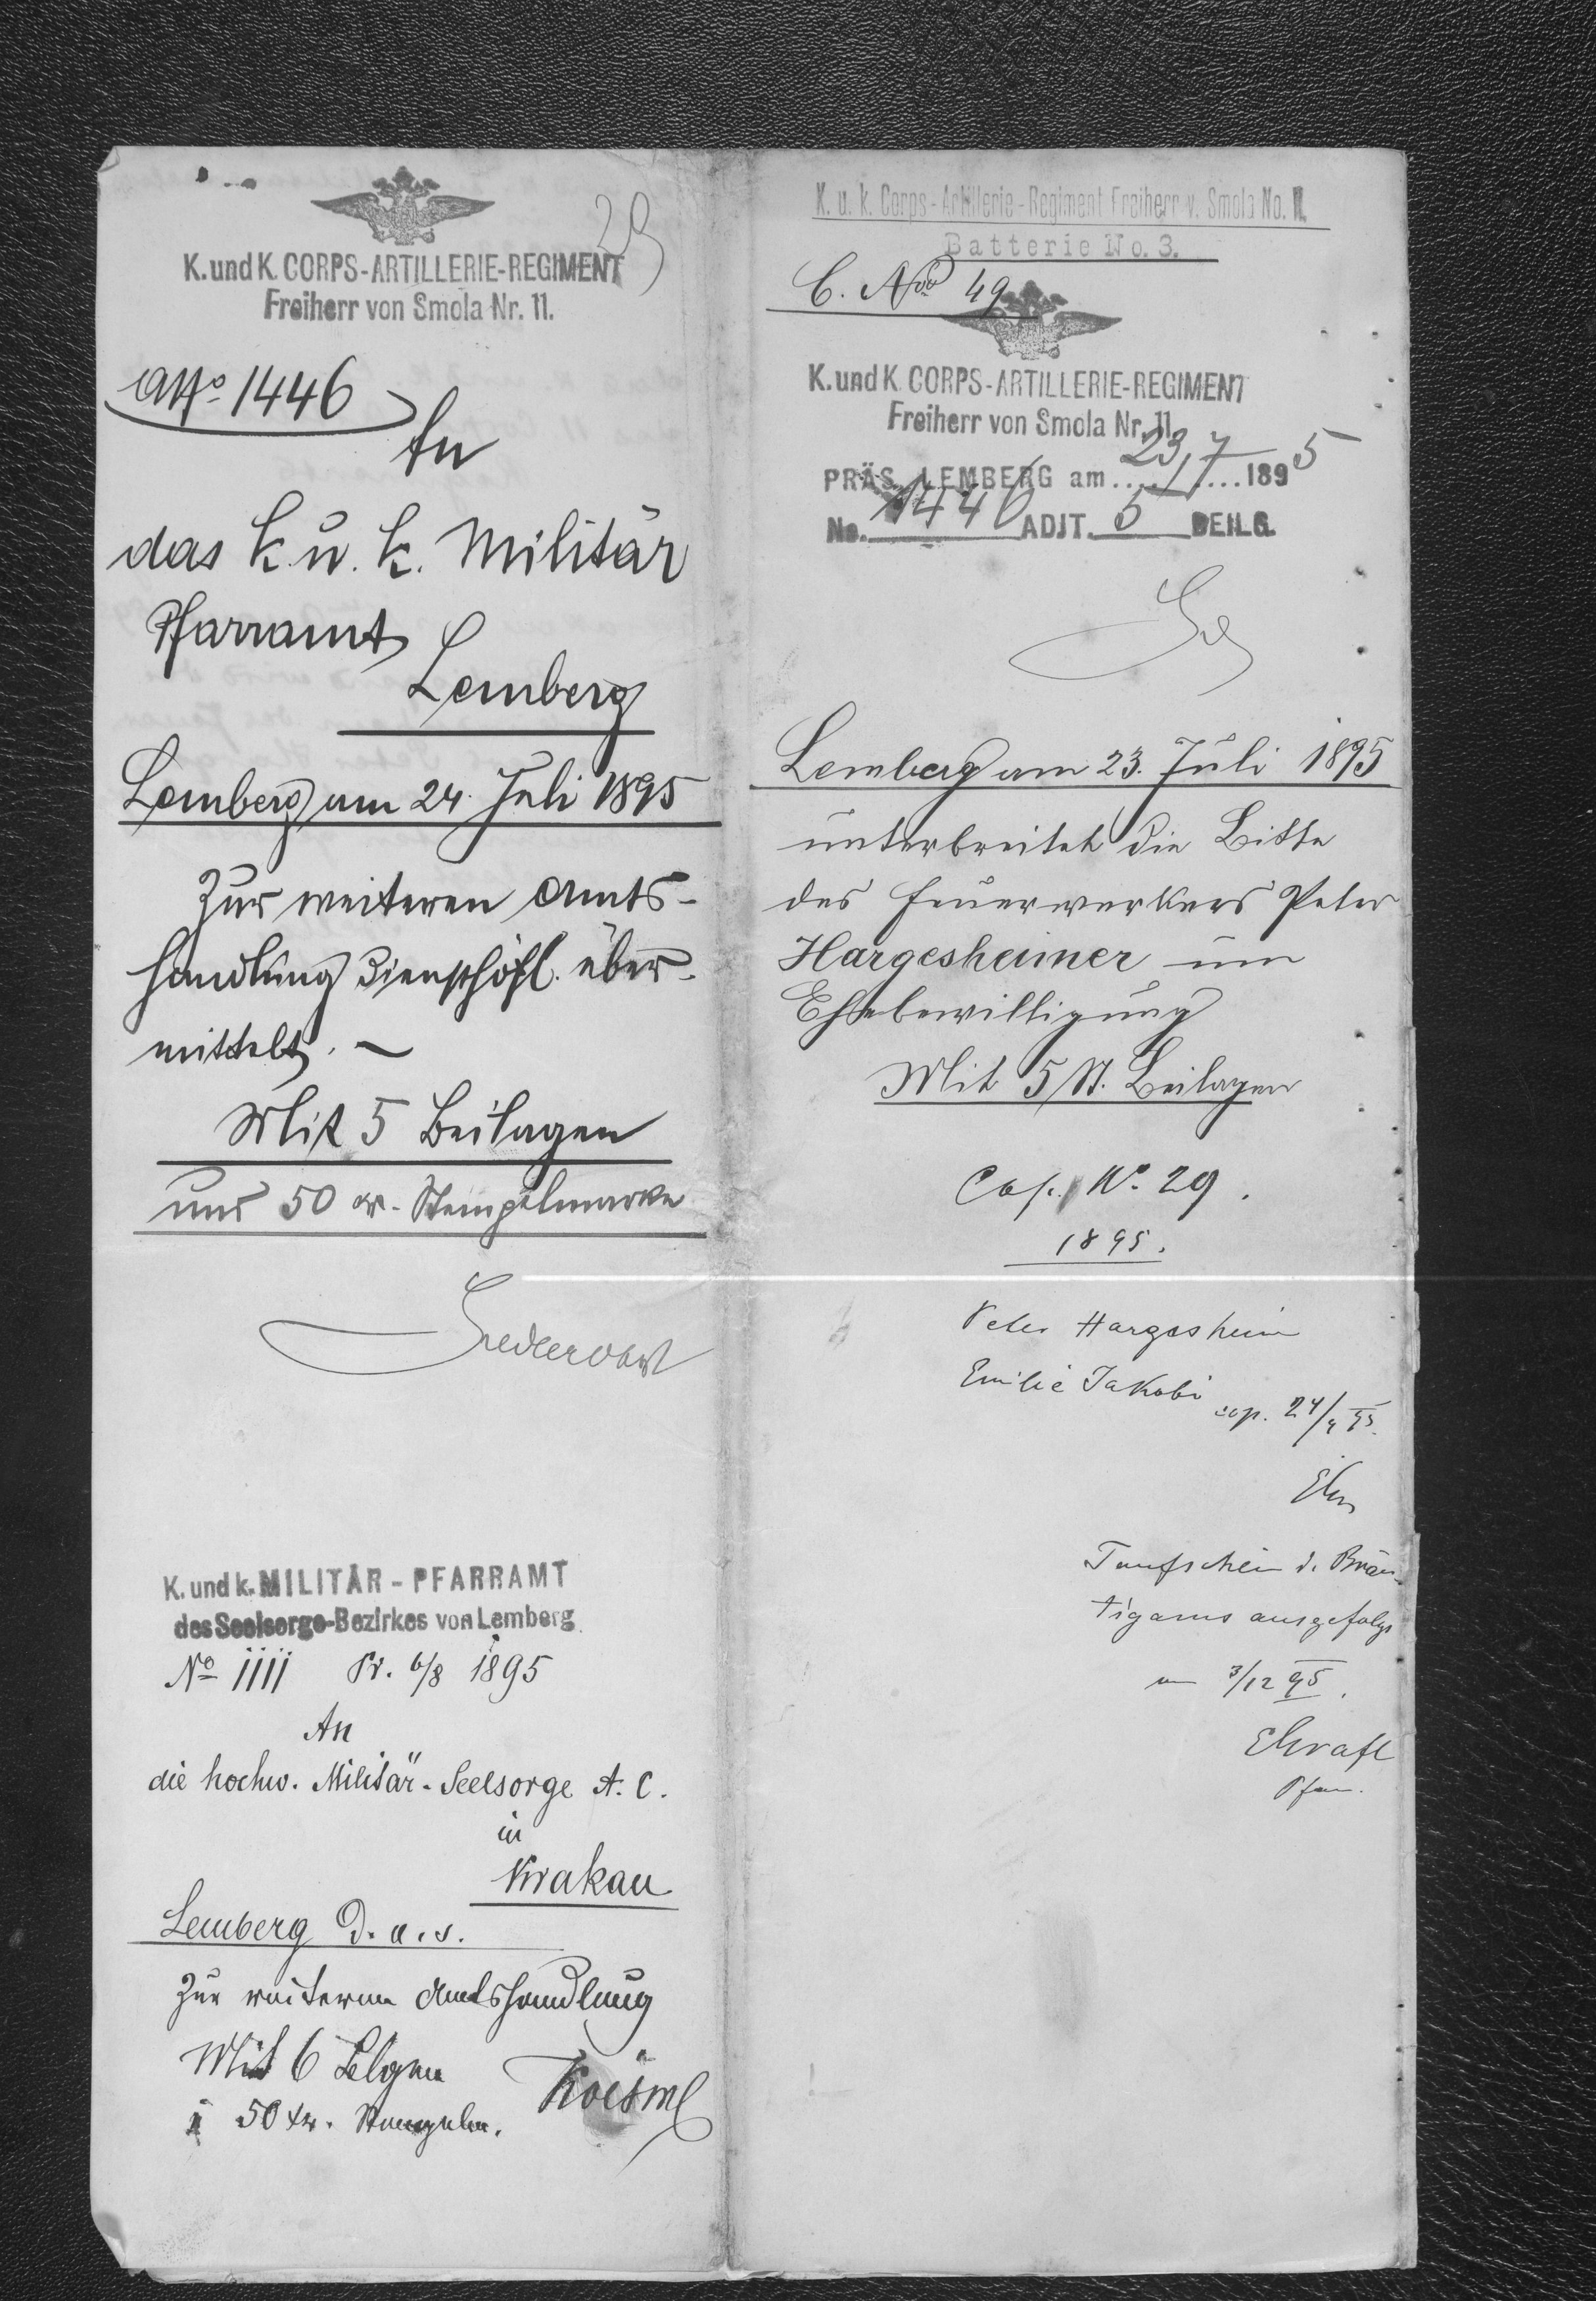 29
K. und K. CORPS-ARTILLERIE-REGIMENT
Freiherr von Smola Nr. 11.
ANo 1446
An
das k. u. k. Militär
Pfarramt
Lemberg
Lemberg am 24. Juli 1895
Zur weiteren Amts-
handlung dienschöfl. über-
mittelt. —
Mit 5 Beilagen
und 50 kr. Stempelmarke
K. und k. MILITÄR-PFARRAMT
des Seelsorge-Bezirkes von Lemberg
No 1111 Pr. 6/8 1895
An
die hochw. Militär-Seelsorge A. C.
in
Krakau
Lemberg d. a. s.
Zur weiteren Amtshandlung
Mit 6 Blgen
50 kr. Stempelm.
K. u. k. Corps-Artillerie-Regiment Freiherr v. Smola No. 11.
Batterie No. 3.
C. Nro 49
K. und K. CORPS-ARTILLERIE-REGIMENT
Freiherr von Smola Nr. 11
PRÄS. LEMBERG am 23/7 1895
No. 1446 ADJT. 5 BEILG.
Lemberg am 23. Juli 1895
unterbreitet die Bitte
des Feuerwerkers Peter
Hargesheimer um
Ehebewilligung
Mit 5 St. Beilagen
Cop. No. 29.
1895.
Peter Hargesheim
Emilie Jakobi
cop. 24/9 95.
Taufschein d. Bräu-
tigams ausgefolgt
am 3/12 95.
Pfarr.